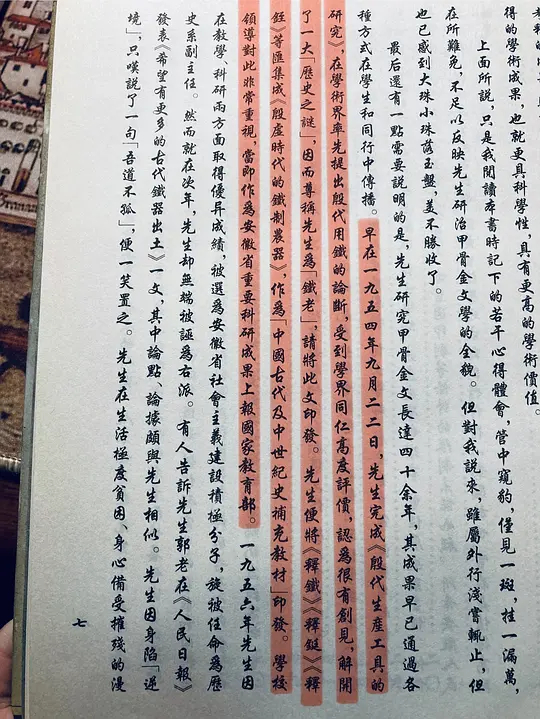 得的學術成果，也就更具科學性，具有更高的學術價值。
上面所説，只是我閱讀本書時記下的若干心得體會，管中窺豹，僅見一斑，挂一漏萬，
在所難免，不足以反映先生研治甲骨金文學的全貌。但對我説來，雖屬外行淺嘗輒止，但
也已感到大珠小珠落玉盤，美不勝收了。
最后還有一點需要説明的是，先生研究甲骨金文長達四十余年，其成果早已通過各
種方式在學生和同行中傳播。早在一九五四年九月二二日，先生完成《殷代生産工具的
研究》，在學術界率先提出殷代用鐵的論斷，受到學界同仁高度評價，認爲很有創見，解開
了一大「歷史之謎」，因而尊稱先生爲「鐵老」，請將此文印發。先生便將《釋鐵》《釋錠》《釋
鈺》等匯集成《殷虛時代的鐵制農器》，作爲「中國古代及中世紀史補充教材」印發。學校
領導對此非常重視，當即作爲安徽省重要科研成果上報國家教育部。一九五六年先生因
在教學、科研兩方面取得優异成績，被選爲安徽省社會主義建設積極分子，旋被任命爲歷
史系副主任。然而就在次年，先生却無端被誣爲右派。有人告訴先生郭老在《人民日報》
發表《希望有更多的古代鐵器出土》一文，其中論點、論據頗與先生相似。先生因身陷「逆
境」，只嘆説了一句「吾道不孤」，便一笑置之。先生在生活極度貧困、身心備受摧殘的漫
七